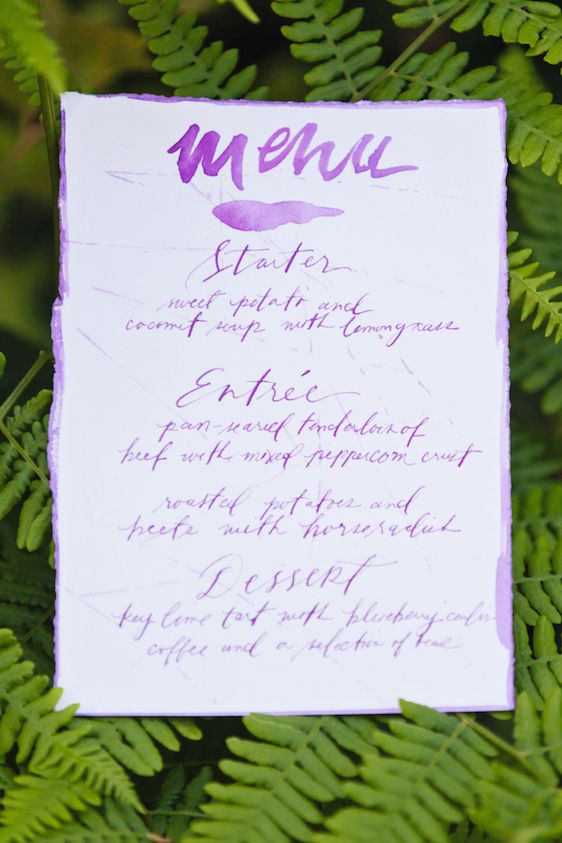 menu
Starter
sweet potato and
coconut soup with lemongrass
Entrée
pan-seared tenderloin of
beef with mixed peppercorn crust
roasted potatoes and
beets with horseradish
Dessert
key lime tart with blueberry coulis
coffee and a selection of teas